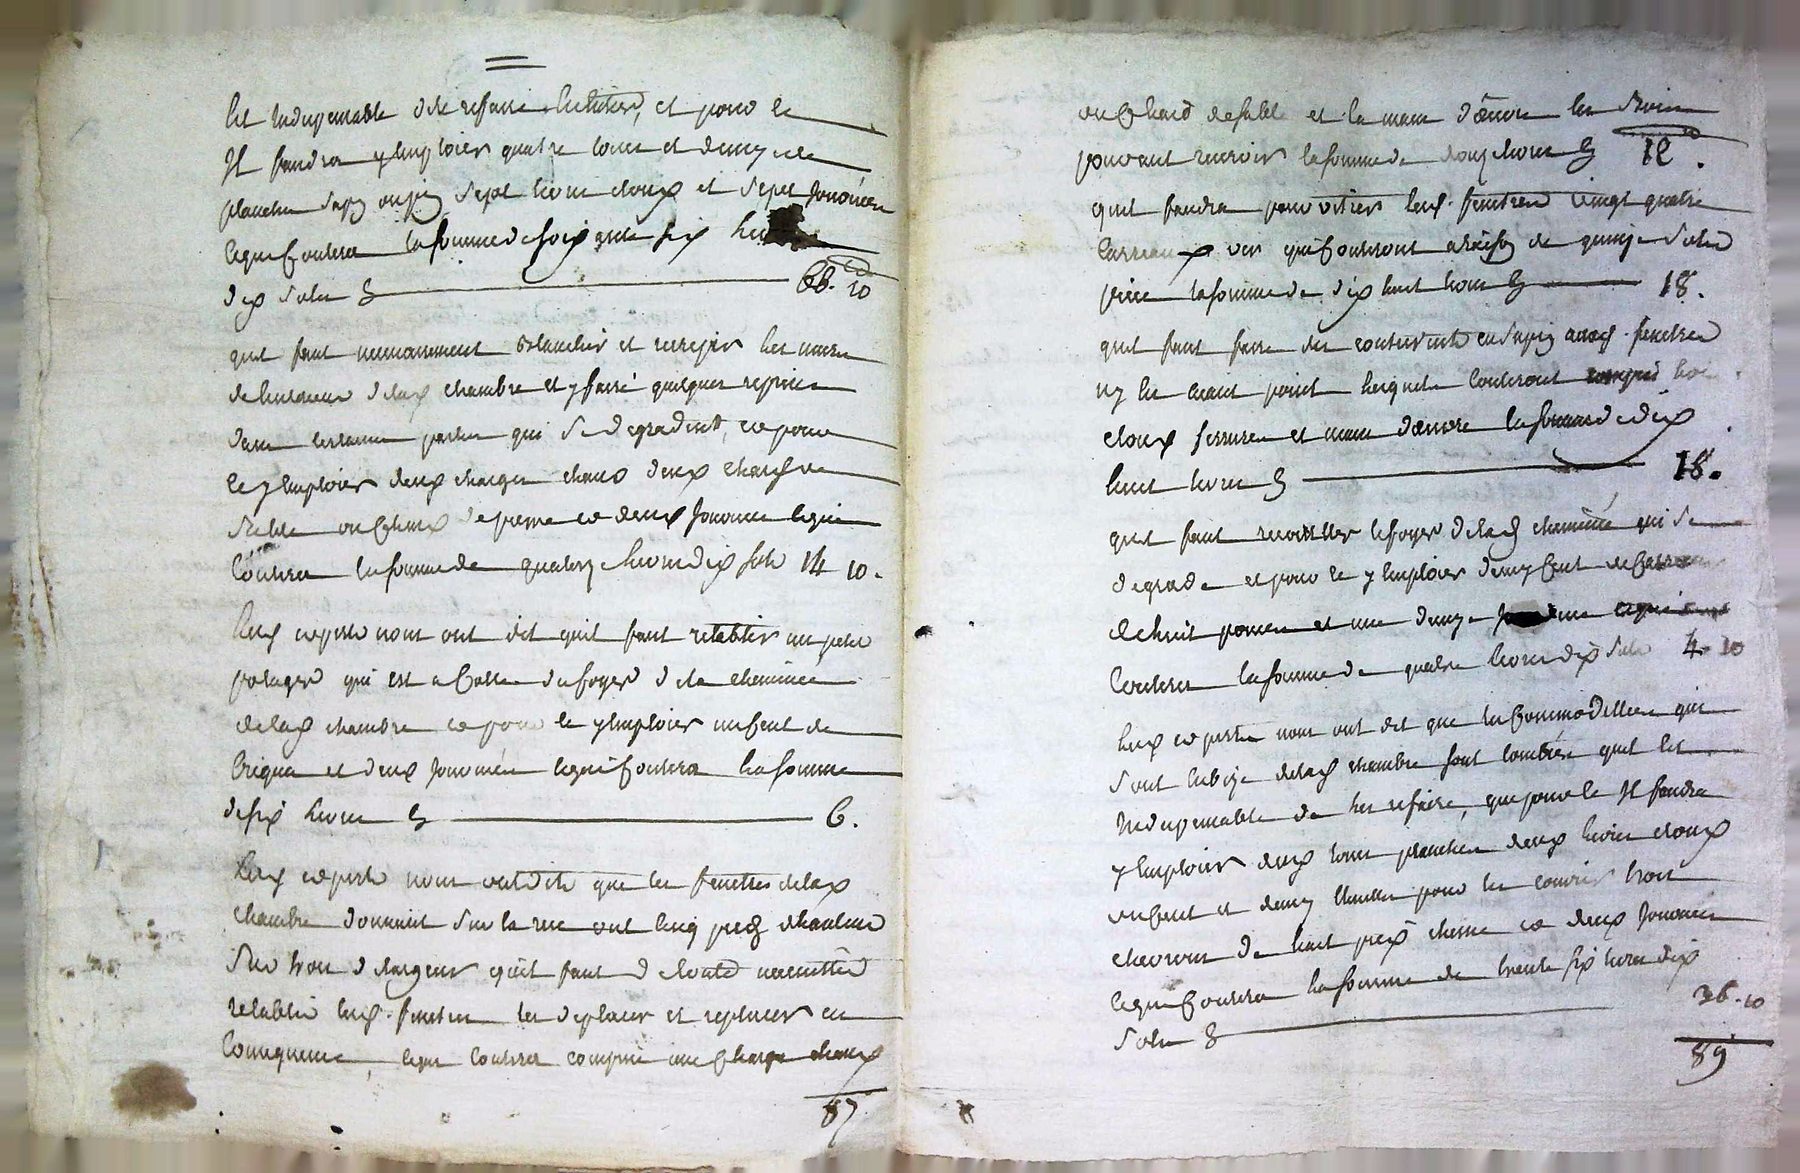 Est Indispensable de refaire et pour ce
Il faudra y Employer quatre toises et demy de
planches sapin sept livres cloux et sept Journées
ce qui Coutera la somme de soixante six
dix sols 66. 10
quil faut necessairement blanchir et recrepir les murs
de linterieur de lad chambre et y faire quelques reprises
dans certaines parties qui se degradent, et pour
ce y Employer deux charges chaux deux
sable et deux Journées ce qui
Coutera la somme de quatorze livres dix sols 14 10.
Lesd experts nous ont dit quil faut retablir un petit
potager qui est a Cotté du foyer de la cheminée
de lad chambre et pour ce y Employer un Cent de
briques et deux Journées ce qui Coutera la somme
de six livres 6.
Lesd experts nous ont dit que les fenettres de lad
chambre donnant sur la rue ont cinq pieds dhauteur
sur trois de largeur quil faut de toute necessitté
retablir lesd. fenetres les deplacer et replacer en
Consequence, ce qui coutera compris une Charge chaux
87
de sable et la main dœuvre le
pouvant recevoir la somme de douze livres 12.
quil faudra pour vitrer lesd. fenetres vingt quatre
Carreaux ver qui Couteront a raison de quinze sols
piece la somme de dix huit livres 18.
quil faut faire des contrevents en sapin auxd. fenetres
ny en ayant point lesquels Couteront compris bois
cloux ferrures et main dœuvre la somme de dix
huit livres 18.
quil faut le foyer de lad cheminée qui se
degrade et pour ce y Employer demy Cent de
de huit pouces et une demye Journée ce qui
Coutera la somme de quatre livres dix sols 4. 10
Lesd experts nous ont dit que les Commodittées qui
sont de lad chambre sont tombées quil est
Indispensable de les refaire, que pour ce Il faudra
y Employer deux toises planches deux livres cloux
un Cent et demy thuiles pour les couvrir trois
chevrons de huit pieds et deux Journées
ce qui Coutera la somme de trente six livres dix
sols 36. 10
89